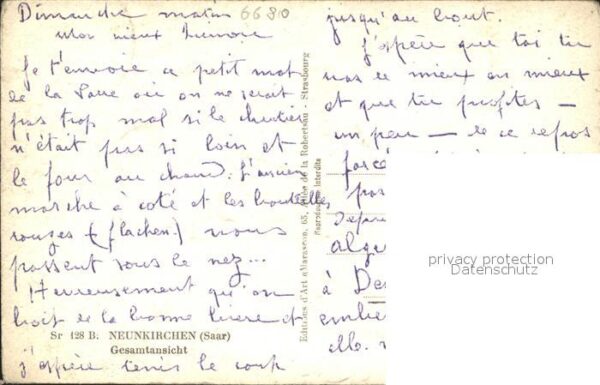 Dimanche matin 6680
Mon vieux
Je t'envoie ce petit mot
de la Sarre où on ne serait
pas trop mal si le chantier
n'était pas si loin et
le four au chaud. L'ancien
marche à coté et les bouteilles
rouges (flachen) nous
passent sous le nez...
Heureusement qu'on
boit de la bonne bière et
Sr 128 B. NEUNKIRCHEN (Saar)
Gesamtansicht
j'espère tenir le coup
Editions d'Art «Marasson, 65, Allée de la Robertsau - Strasbourg
Reproduction interdite
jusqu'au bout.
J'espère que toi tu
vas de mieux en mieux
et que tu profites -
un peu - de ce repos
forcé
pas
depui
alge
à De
embe
M.
privacy protection
Datenschutz